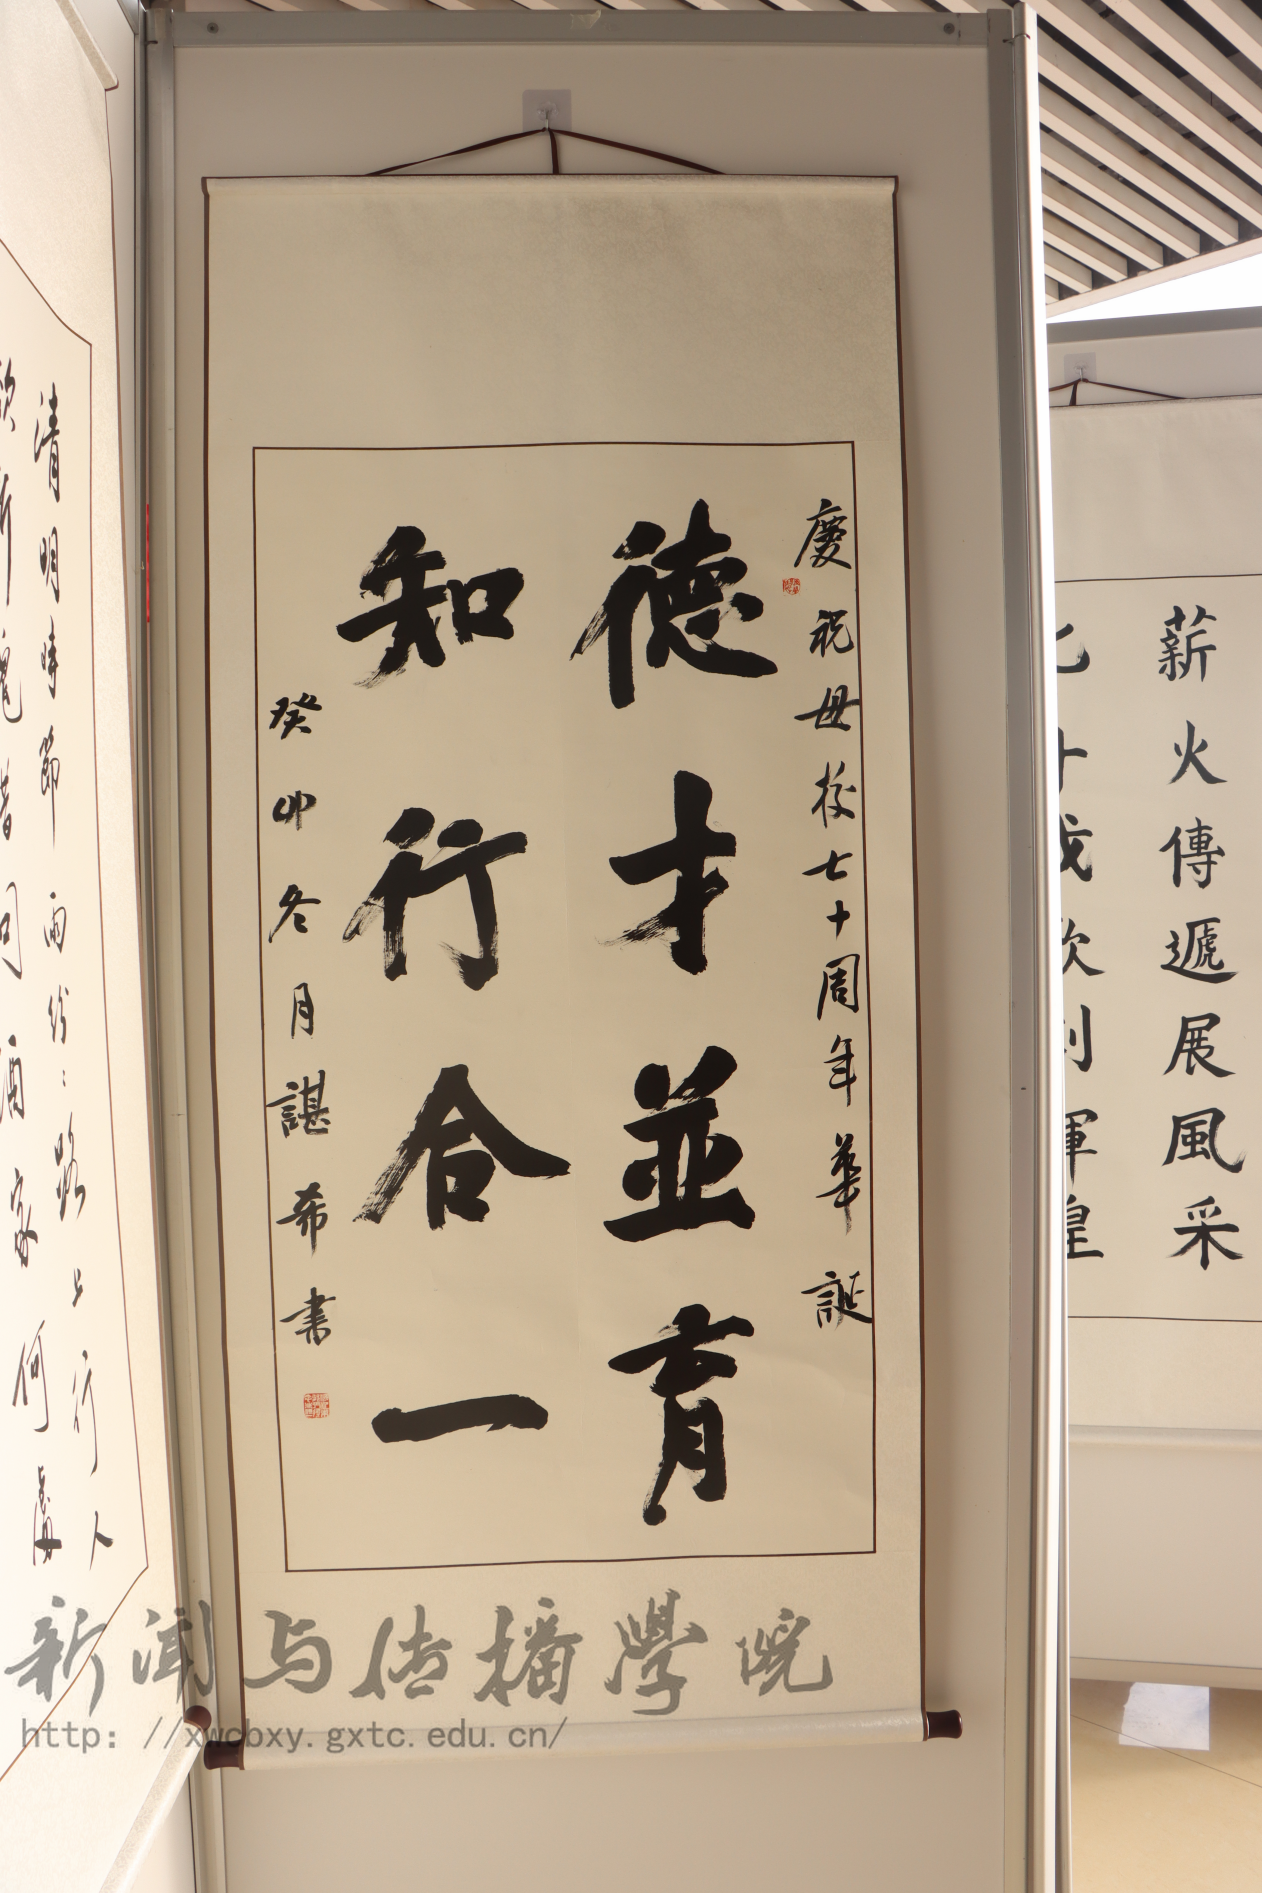 慶祝母校七十周年華誕
德才並育
知行合一
癸卯冬月諶希書
薪火傳遞展風采
清明時節雨紛:路上行人
魂借问酒家何處
新闻与传播學院
http: //xwcbxy.gxtc.edu.cn/